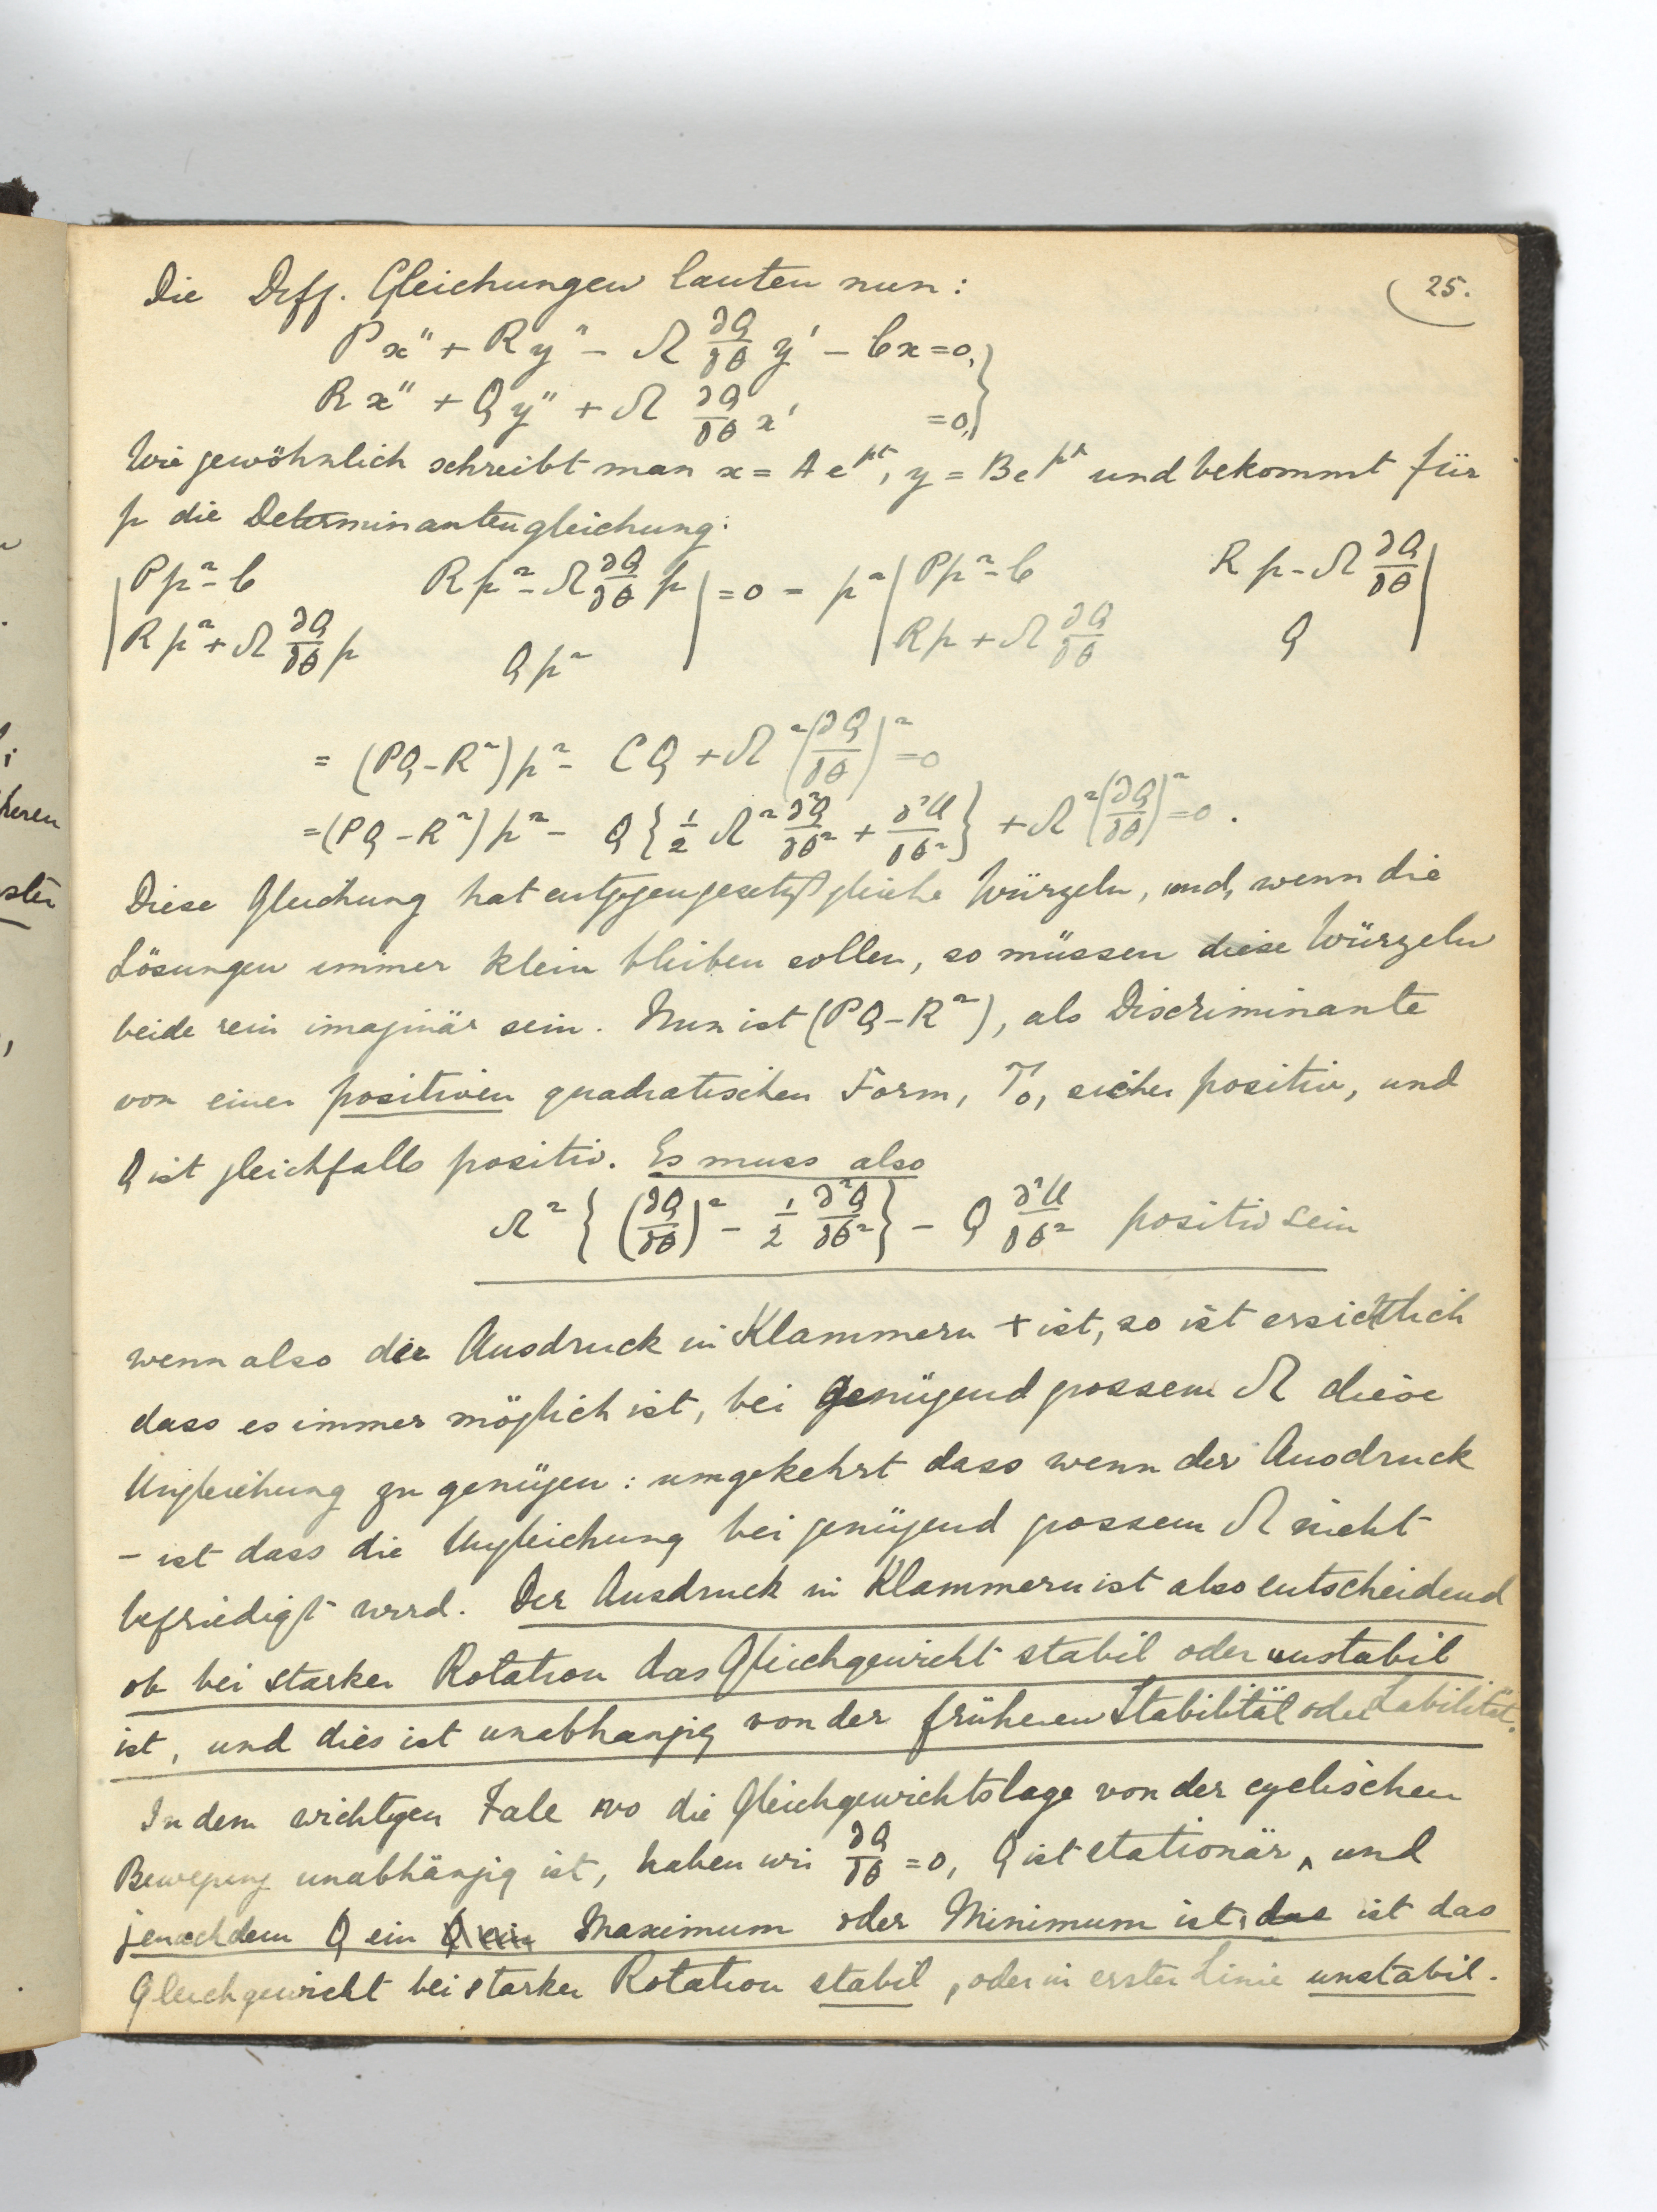 25.
Die Diff. Gleichungen lauten nun:
P x'' + R y'' − Ω ∂Q/∂θ y' − C x = 0, }
R x'' + Q y'' + Ω ∂Q/∂θ x' = 0, }
Wie gewöhnlich schreibt man x = A e^{pt}, y = B e^{pt} und bekommt für
p die Determinantengleichung:
| Pp² − C    Rp² − Ω ∂Q/∂θ p | = 0 = p² | Pp² − C    Rp − Ω ∂Q/∂θ |
| Rp² + Ω ∂Q/∂θ p    Qp² |    | Rp + Ω ∂Q/∂θ    Q |
= (PQ − R²) p² − CQ + Ω² (∂Q/∂θ)² = 0
= (PQ − R²) p² − Q { 1/2 Ω² ∂²Q/∂θ² + ∂²U/∂θ² } + Ω² (∂Q/∂θ)² = 0 .
Diese Gleichung hat entgegengesetzt gleiche Würzeln, und, wenn die
Lösungen immer klein bleiben sollen, so müssen diese Würzeln
beide rein imaginär sein. Nun ist (PQ − R²), als Discriminante
von einer positiven quadratischen Form, T₀, sicher positiv, und
Q ist gleichfalls positiv. Es muss also
Ω² { (∂Q/∂θ)² − 1/2 ∂²Q/∂θ² } − Q ∂²U/∂θ² positiv sein
wenn also der Ausdruck in Klammern + ist, so ist ersichtlich
dass es immer möglich ist, bei genügend grossem Ω diese
Ungleichung zu genügen : umgekehrt dass wenn der Ausdruck
− ist dass die Ungleichung bei genügend grossem Ω nicht
befriedigt wird. Der Ausdruck in Klammern ist also entscheidend
ob bei starker Rotation das Gleichgewicht stabil oder unstabil
ist, und dies ist unabhangig von der früheren Stabilität oder Labilität.
In dem wichtigen Fale wo die Gleichgewichtslage von der cyclischen
Bewegung unabhängig ist, haben wir ∂Q/∂θ = 0, Q ist stationär, und
jenachdem Q ein Q ein Maximum oder Minimum ist, das ist das
Gleichgewicht bei starker Rotation stabil, oder in erster Linie unstabil.